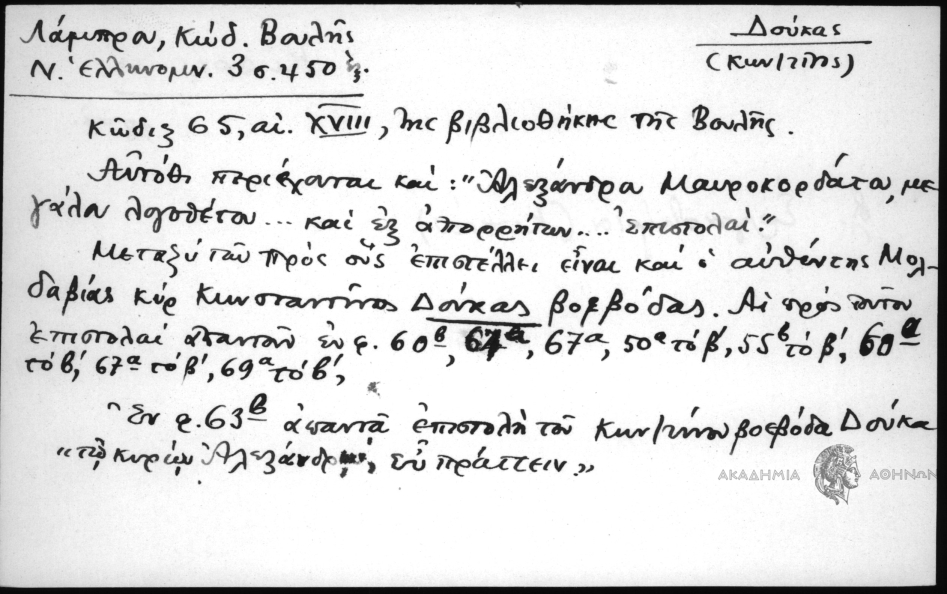 Λάμπρου, Κώδ. Βουλῆς
Δούκας
Ν. Ἑλληνομν. 3 σ. 450 ἑξ.
(Κων/τῖνος)
Κῶδιξ 65, αἰ. XVIII, τῆς βιβλιοθήκης τῆς Βουλῆς.
Αὐτόθι περιέχονται καὶ: "Ἀλεξάνδρου Μαυροκορδάτου, με-
γάλου λογοθέτου... καὶ ἐξ ἀπορρήτων.... ἐπιστολαί."
Μεταξὺ τῶν πρὸς οὓς ἐπιστέλλει εἶναι καὶ ὁ αὐθέντης Μολ-
δαβίας κὺρ Κωνσταντῖνος Δούκας βοεβόδας. Αἱ πρὸς τοῦτον
ἐπιστολαὶ ἀπαντοῦν ἐν φ. 60β, 67α, 50α τὸ β', 55β τὸ β', 60α
τὸ β', 67α τὸ β', 69α τὸ β',
Ἐν φ. 63β ἀπαντᾶ ἐπιστολὴ τοῦ Κων/τίνου βοεβόδα Δούκα
«τῷ κυρίῳ Ἀλεξάνδρῳ, εὖ πράττειν»
ΑΚΑΔΗΜΙΑ ΑΘΗΝΩΝ